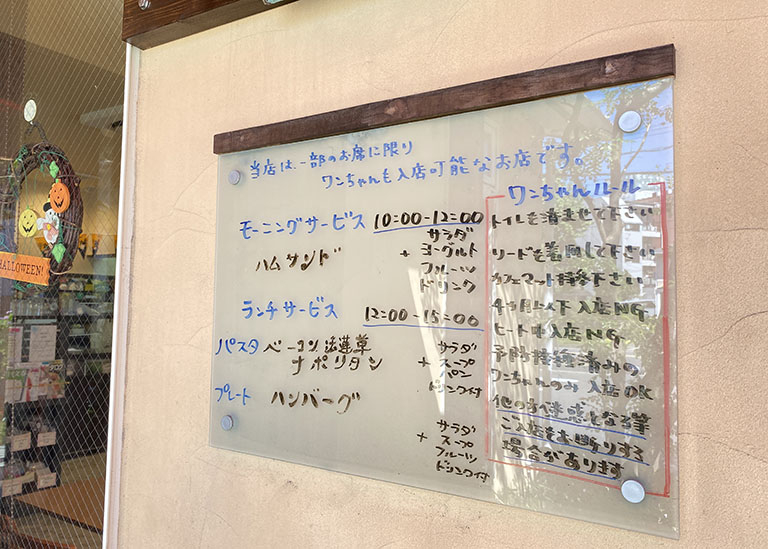 当店は、一部のお席に限り
ワンちゃんも入店可能なお店です。
モーニングサービス 10:00-12:00
ハムサンド + サラダ
ヨーグルト
フルーツ
ドリンク
ランチサービス 12:00-15:00
パスタ ベーコン法蓮草
ナポリタン
+ サラダ
スープ
パン
ドリンク付
プレート ハンバーグ
+ サラダ
スープ
フルーツ
ドリンク付
ワンちゃんルール
トイレを済ませて下さい
リードを着用して下さい
カフェマット持参下さい
4ヶ月以下入店NG
ヒート中入店NG
予防接種済みの
ワンちゃんのみ入店OK
他の方へ迷惑となる等
ご入店をお断りする
場合があります
HALLOWEEN!